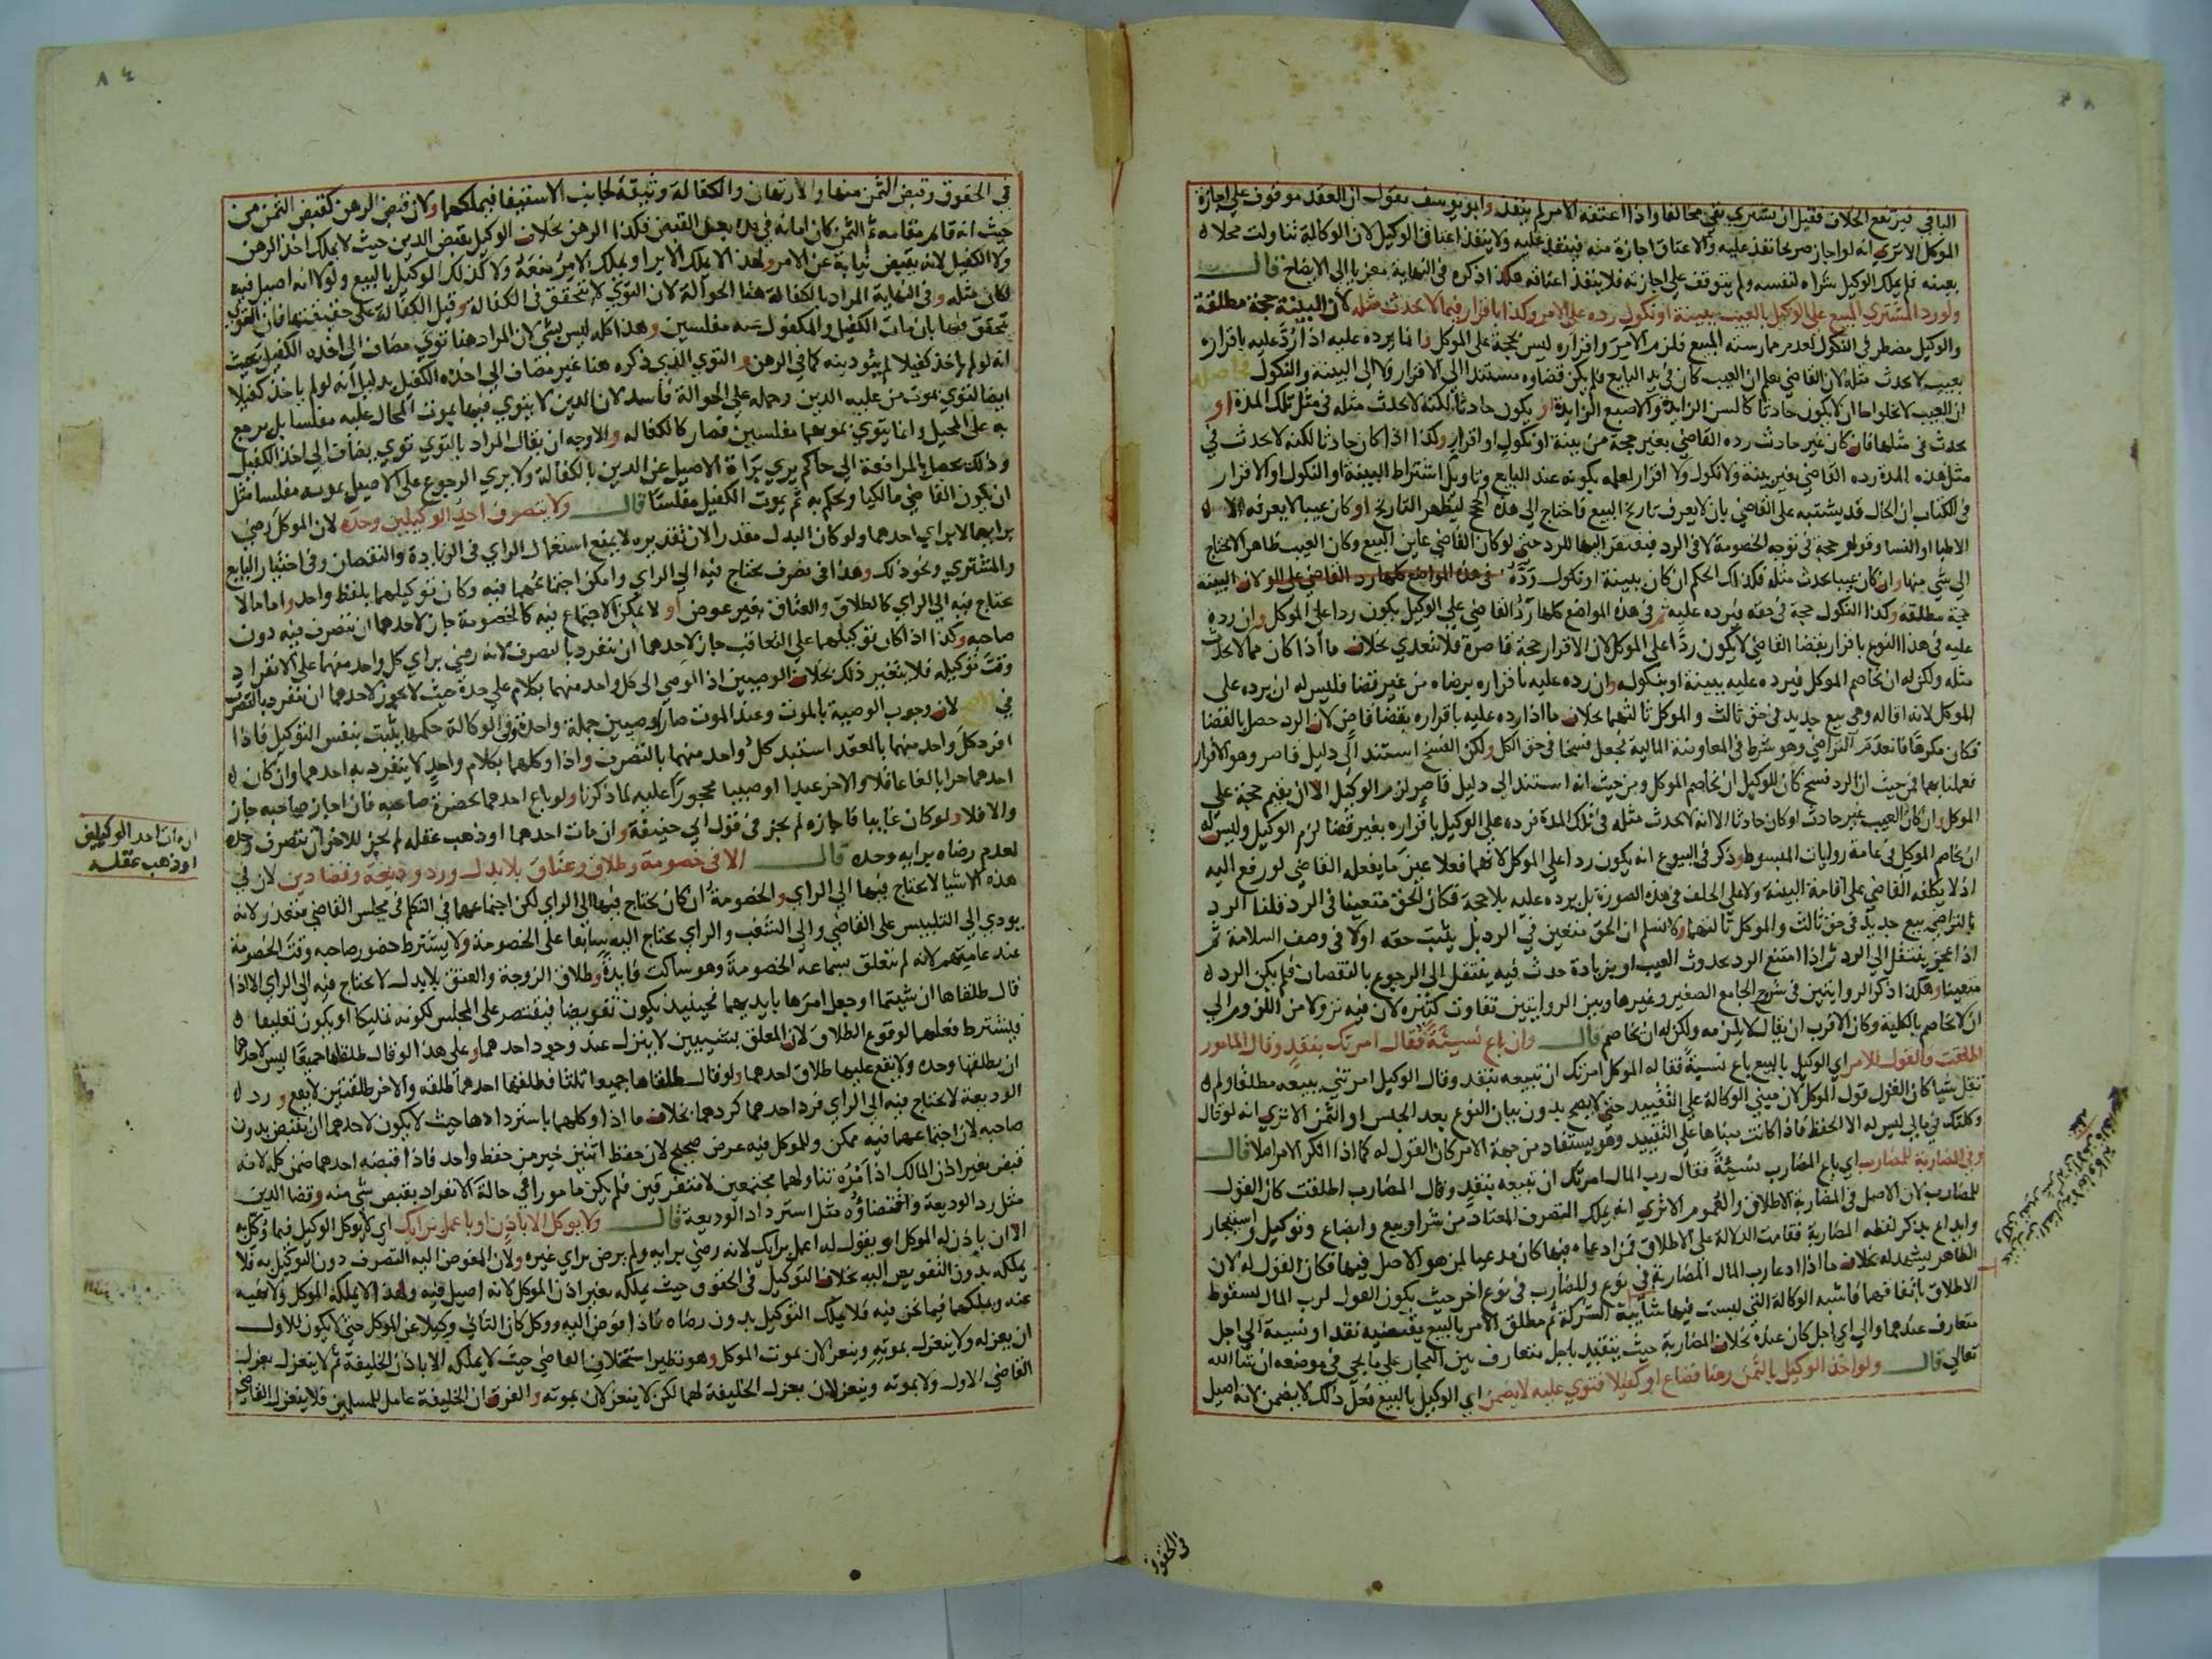 الباقي فيرتفع الخلاف فقبل ان يشتري بقي مخالفا واذا اعتقه الآمر لم ينفذ وابو يوسف يقول ان العقد موقوف على اجازة
الموكل الا ترى انه لو اجاز صريحا نفذ عليه والاعتاق اجازة منه فينفذ عليه ولا ينفذ اعتاق الوكيل لان الوكالة تناولت محلا
بعينه فلم يملك الوكيل شراه لنفسه ولم يتوقف على اجازته فلا ينفذ اعتاقه هكذا ذكره في النهاية معزيا الى الايضاح قال
ولو رد المشتري المبيع على الوكيل بالعيب ببينة او نكول رده على الآمر وكذا باقرار فيما لا يحدث مثله لان البينة حجة مطلقة
والوكيل مضطر في النكول لعدم ممارسته المبيع فلزم الآمر واقراره ليس بحجة على الموكل وانما يرده عليه اذا رد عليه باقراره
بعيب لا يحدث مثله لان القاضي يعلم ان العيب كان في يد البايع فلم يكن قضاوه مستندا الى الاقرار ولا الى البينة والنكول
ان العيب لا يخلو اما ان لا يكون حادثا كالسن الزايدة والاصبع الزايدة او يكون حادثا لكنه لا يحدث مثله في مثل تلك المدة او
يحدث في مثلها فان كان غير حادث رده القاضي بغير حجة من بينة او نكول او اقرار وكذا اذا كان حادثا لكنه لا يحدث في
مثل هذه المدة رده القاضي بغير بينة ولا نكول ولا اقرار لعلمه بكونه عند البايع وتاويل اشتراط البينة او النكول او الاقرار
في الكتاب ان الحال قد يشتبه على القاضي بان لا يعرف تاريخ البيع فاحتاج الى هذه الحجج ليظهر التاريخ او كان عيبا لا يعرفه الا
الاطبا او النسا وقولهم حجة في توجه الخصومة لا في الرد فيفتقر اليها للرد حتى لو كان القاضي عاين البيع وكان العيب ظاهرا لا يحتاج
الى شي منها وان كان عيبا يحدث مثله فكذلك الحكم ان كان ببينة او نكول رده في هذه المواضع كلها رد القاضي على الو لان البينة
حجة مطلقة وكذا النكول حجة في حقه فيرده عليه ثم في هذه المواضع كلها رد القاضي على الوكيل يكون ردا على الموكل وان رده
عليه في هذا النوع باقرار بقضا القاضي لا يكون ردا على الموكل لان الاقرار حجة قاصرة فلا تتعدى بخلاف ما اذا كان مما لا يحدث
مثله ولكن له ان يخاصم الموكل فيرده عليه ببينة او بنكوله وان رده عليه باقراره برضاه من غير قضا فليس له ان يرده على
الموكل لانه اقاله وهي بيع جديد في حق ثالث والموكل ثالثهما بخلاف ما اذا رده عليه باقراره بقضا قاض لان الرد حصل بالقضا
فكان مكرها فانعدم التراضي وهو شرط في المعاوضة المالية فجعل فسخا في حق الكل ولكن الفسخ استند الى دليل قاصر وهو الاقرار
فعملنا بهما فمن حيث ان الرد فسخ كان للوكيل ان يخاصم الموكل ومن حيث انه استند الى دليل قاصر لزم الوكيل الا ان يقيم حجة على
الموكل وان كان العيب غير حادث او كان حادثا الا انه لا يحدث مثله في تلك المدة فرده على الوكيل باقراره بغير قضا لزم الوكيل وليس له
ان يخاصم الموكل في عامة روايات المبسوط وذكر في البيوع انه يكون ردا على الموكل لانهما فعلا عين ما يفعله القاضي لو رفع اليه
اذ لا يكلفه القاضي على اقامة البينة ولا على الحلف في هذه الصورة بل يرده عليه بلا حجة فكان الحق متعينا في الرد قلنا الرد
بالتراضي بيع جديد في حق ثالث والموكل ثالثهما ولا نسلم ان الحق متعين في الرد بل يثبت حقه اولا في وصف السلامة ثم
اذا عجز ينتقل الى الرد ثم اذا امتنع الرد بحدوث العيب او بزيادة حدث فيه ينتقل الى الرجوع بالنقصان فلم يكن الرد
متعينا وهكذا ذكر الروايتين في شروح الجامع الصغير وغيرها وبين الروايتين تفاوت كثير لان فيه نزولا من اللزوم الى
ان لا يخاصم بالكلية وكان الاقرب ان يقال لا يلزمه ولكن له ان يخاصم قال وان باع نسيئة فقال امرتك بنقد وقال المامور
اطلقت فالقول للآمر اي الوكيل بالبيع باع نسيئة فقال له الموكل امرتك ان تبيعه بنقد وقال الوكيل امرتني ببيعه مطلقا ولم
تقل شيا كان القول قول الموكل لان مبنى الوكالة على التقييد حتى لا يصح بدون بيان النوع بعد الجنس او الثمن الا ترى انه لو قال
وكلتك في مالي ليس له الا الحفظ فاذا كانت مبناها على التقييد وهو يستفاد من جهة الآمر كان القول له كما اذا انكر الامر اصلا قال
وفي المضاربة للمضارب اي باع المضارب نسيئة فقال رب المال امرتك ان تبيعه بنقد وقال المضارب اطلقت كان القول
للمضارب لان الاصل في المضاربة الاطلاق والعموم الا ترى انه يملك التصرف المعتاد من شرا وبيع وابضاع وتوكيل واستيجار
وايداع بذكر لفظه المضاربة فقامت الدلالة على الاطلاق فمن ادعاه فيها كان مدعيا لمن هو الاصل فيها فكان القول له لان
الظاهر يشهد له بخلاف ما اذا ادعا رب المال المضاربة في نوع والمضارب في نوع اخر حيث يكون القول لرب المال لسقوط
الاطلاق باتفاقهما فاشبه الوكالة التي ليست فيها شايبة الشركة ثم مطلق الامر بالبيع يقتضيه نقدا ونسيئة الى اجل
متعارف عندهما والى اي اجل كان عنده بخلاف المضاربة حيث يتقيد باجل متعارف بين التجار على ما يجي في موضعه ان شا الله
تعالى قال ولو اخذ الوكيل بالثمن رهنا فضاع او كفيلا فتوي عليه لا يضمن اي الوكيل بالبيع فعل ذلك لا يضمن لانه اصيل
في الحقوق
٨٤
في الحقوق وقبض الثمن منها والارتهان والكفالة وثيقة لجانب الاستيفا فيملكهما ولان قبض الرهن كقبض الثمن من
حيث انه قام مقامه ثم الثمن كان امانة في يده بعد القبض فكذا الرهن بخلاف الوكيل بقبض الدين حيث لا يملك اخذ الرهن
ولا الكفيل لانه يقبض نيابة عن الآمر ولهذا لا يملك الابرا ويملك الآمر منعه ولا كذلك الوكيل بالبيع ولولا انه اصيل فيه
لكان مثله وفي النهاية المراد بالكفالة هنا الحوالة لان التوي لا يتحقق في الكفالة وقيل الكفالة على حقيقتها فان التوي
يتحقق فيها بان مات الكفيل والمكفول عنه مفلسين وهذا كله ليس بشي لان المراد هنا توي مضاف الى اخذه الكفيل بحيث
انه لو لم ياخذ كفيلا لم يتو دينه كما في الرهن والتوي الذي ذكره هنا غير مضاف الى اخذه الكفيل بدليل انه لو لم ياخذ كفيلا
ايضا لتوي بموت من عليه الدين وحمله على الحوالة فاسد لان الدين لا يتوي فيها بموت المحال عليه مفلسا بل يرجع
به على المحيل وانما يتوي بموتهما مفلسين فصار كالكفالة والاوجه ان يقال المراد بالتوي توي يضاف الى اخذ الكفيل
وذلك يحصل بالمرافعة الى حاكم يرى براة الاصيل عن الدين بالكفالة ولا يرى الرجوع على الاصيل بموته مفلسا مثل
ان يكون القاضي مالكيا ويحكم به ثم يموت الكفيل مفلسا قال ولا يتصرف احد الوكيلين وحده لان الموكل رضي
برايهما لا براي احدهما ولو كان البدل مقدرا لان تقديره لا يمنع استعمال الراي في الزيادة والنقصان وفي اختيار البايع
والمشتري ونحو ذلك وهذا في تصرف يحتاج فيه الى الراي وامكن اجتماعهما فيه وكان توكيلهما بلفظ واحد واما ما لا
يحتاج فيه الى الراي كالطلاق والعتاق بغير عوض او لا يمكن الاجتماع فيه كالخصومة جاز لاحدهما ان يتصرف فيه دون
صاحبه وكذا اذا كان توكيلهما على التعاقب جاز لاحدهما ان ينفرد بالتصرف لانه رضي براي كل واحد منهما على الانفراد
وقت توكيله فلا يتغير ذلك بخلاف الوصيين اذا اوصى الى كل واحد منهما بكلام على حدة حيث لا يجوز لاحدهما ان ينفرد بالتصرف
في الاصح لان وجوب الوصية بالموت وعند الموت صارا وصيين جملة واحدة وفي الوكالة حكمها يثبت بنفس التوكيل فاذا
افرد كل واحد منهما بالعقد استبد كل واحد منهما بالتصرف واذا وكلهما بكلام واحد لا ينفرد به احدهما وان كان
احدهما حرا بالغا عاقلا والاخر عبدا او صبيا محجورا عليه لما ذكرنا ولو باع احدهما بحضرة صاحبه فان اجاز صاحبه جاز
والا فلا ولو كان غايبا فاجازه لم يجز في قول ابي حنيفة وان مات احدهما او ذهب عقله لم يجز للاخر ان يتصرف وحده
لعدم رضاه برايه وحده قال الا في خصومة وطلاق وعتاق بلا بدل ورد وديعة وقضا دين لان في
هذه الاشيا لا يحتاج فيها الى الراي والخصومة ان كان يحتاج فيها الى الراي لكن اجتماعهما في التكلم في مجلس القاضي متعذر لانه
يودي الى التلبيس على القاضي والى الشغب والراي يحتاج اليه سابقا على الخصومة ولا يشترط حضور صاحبه وقت الخصومة
عند عامتهم لانه لم يتعلق بسماعه الخصومة وهو ساكت فايدة وطلاق الزوجة والعتق بلا بدل لا يحتاج فيه الى الراي الا اذا
قال طلقاها ان شيتما او جعل امرها بايديهما فحينيذ يكون تفويضا فيقتصر على المجلس لكونه تمليكا او يكون تعليقا
فيشترط فعلهما لوقوع الطلاق لان المعلق بشيئين لا ينزل عند وجود احدهما وعلى هذا لو قال طلقاها جميعا ليس لاحدهما
ان يطلقها وحده ولا يقع عليها طلاق احدهما ولو قال طلقاها جميعا ثلثا فطلقها احدهما طلقة والاخر طلقتين لا يقع ورد
الوديعة لا يحتاج فيه الى الراي فرد احدهما كردهما بخلاف ما اذا وكلهما باستردادها حيث لا يكون لاحدهما ان يقبض بدون
صاحبه لان اجتماعهما فيه ممكن وللموكل فيه غرض صحيح لان حفظ اثنين خير من حفظ واحد فاذا قبضه احدهما ضمن كله لانه
قبض بغير اذن المالك اذ امره تناولهما مجتمعين لا متفرقين فلم يكن مامورا في حالة الانفراد بقبض شي منه وقضا الدين
مثل رد الوديعة واقتضاؤه مثل استرداد الوديعة قال ولا يوكل الا باذن او باعمل برايك اي لا يوكل الوكيل فيما وكل به
الا ان ياذن له الموكل او يقول له اعمل برايك لانه رضي برايه ولم يرض براي غيره ولان المفوض اليه التصرف دون التوكيل به فلا
يملكه بدون التفويض اليه بخلاف التوكيل في الحقوق حيث يملكه بغير اذن الموكل لانه اصيل فيه ولهذا لا يملكه الموكل ولا نهيه
عنه ويملكهما فيما نحن فيه فلا يملك التوكيل بدون رضاه فاذا فوض اليه ووكل كان الثاني وكيلا عن الموكل حتى لا يكون للاول
ان يعزله ولا ينعزل بموته وينعزلان بموت الموكل وهو نظير استخلاف القاضي حيث لا يملكه الا باذن الخليفة ثم لا ينعزل بعزل
القاضي الاول ولا بموته وينعزلان بعزل الخليفة لهما لكن لا ينعزلان بموته والفرق ان الخليفة عامل للمسلمين فلا ينعزل القاضي
ان مات احد الوكيلين
او ذهب عقله